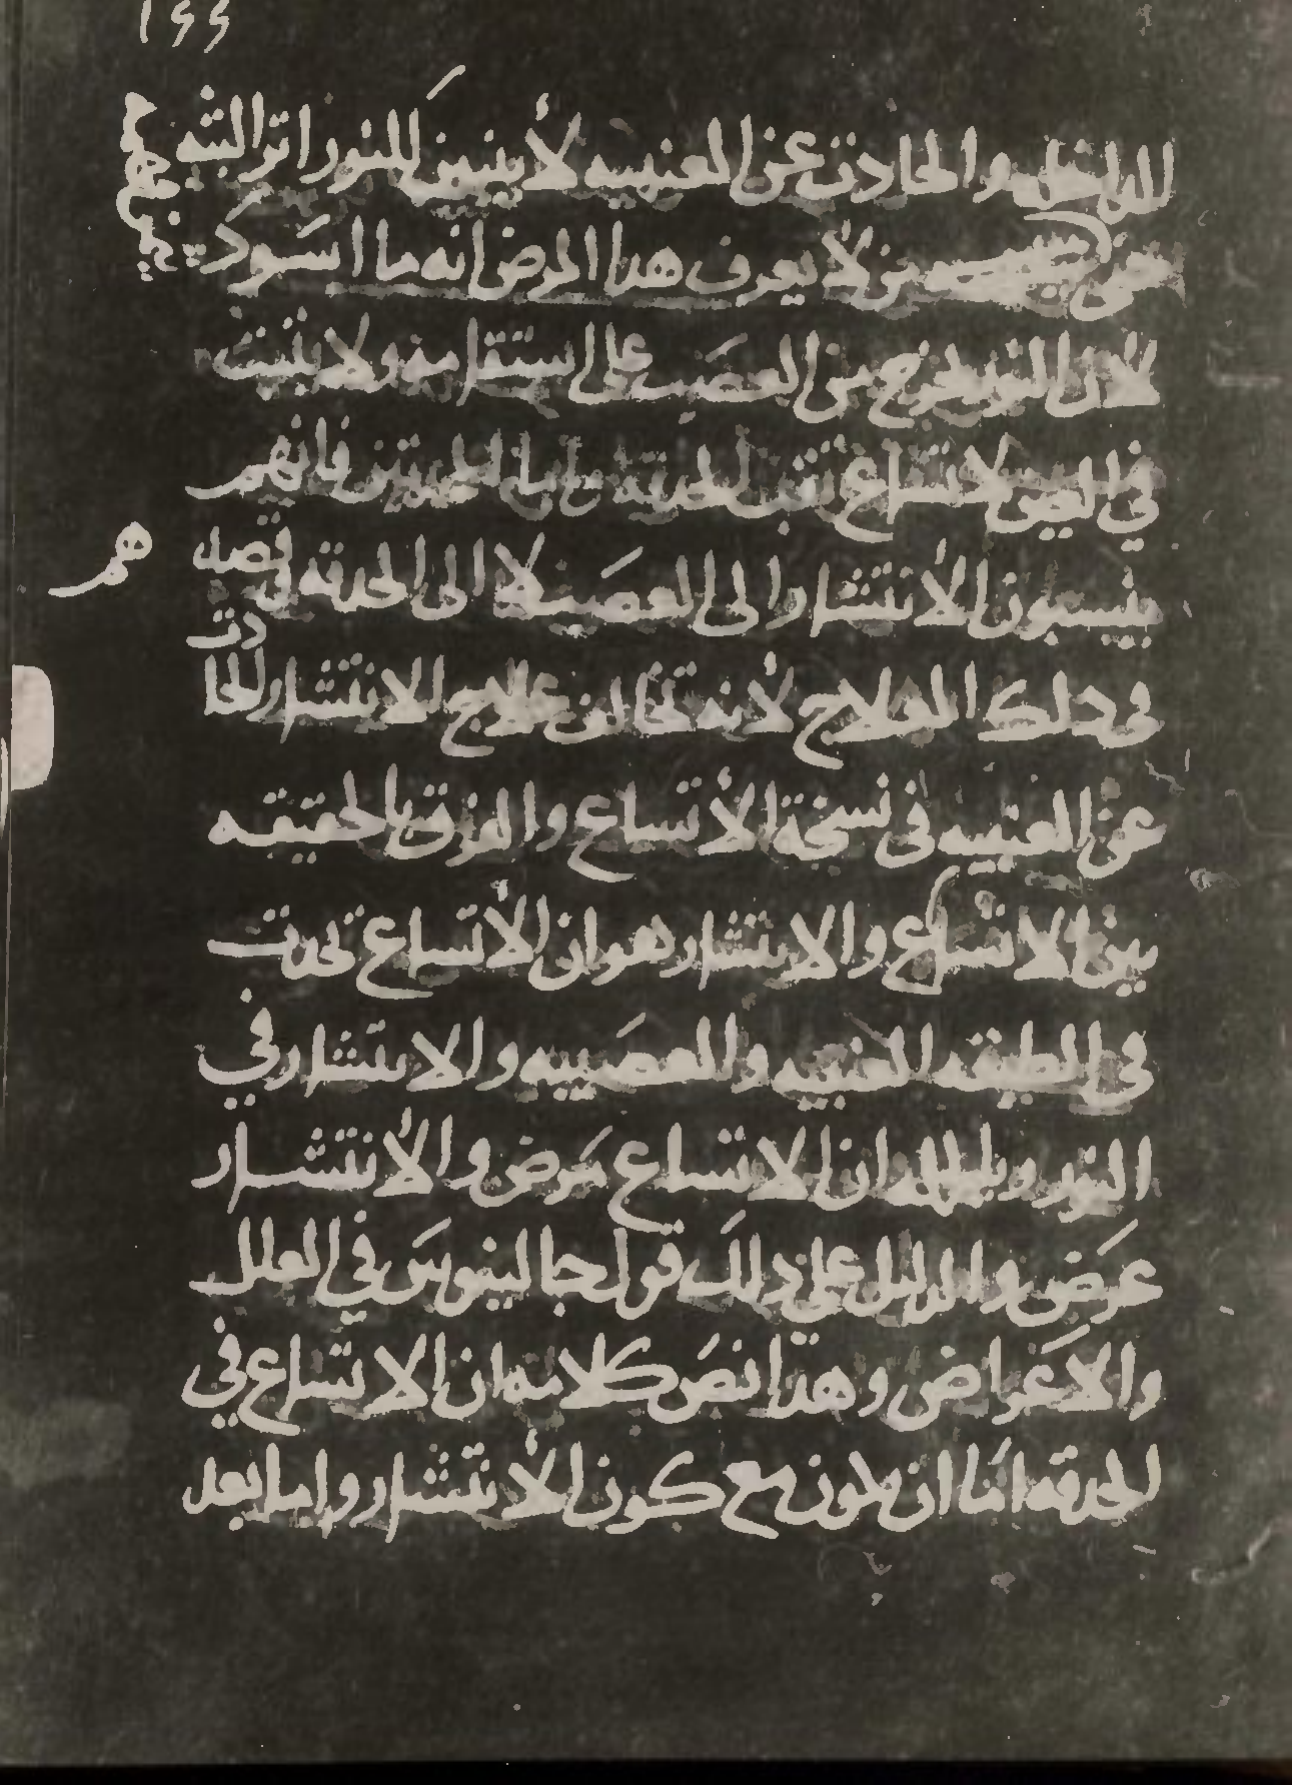 ١٢٢
والحادث عن العنبيه لا يتبين للنور اثر البته
من لا يعرف هذا المرض انه ما اسود
لان النور يخرج من العصب على استقامه ولا يثبت
في العين لاتساع ثقب الحدقه فانهم
ينسبون الانتشار الى العصب لا الى الحدقه في قصد
هم
في ذلك العلاج لانه يخالف علاج الانتشار الحادث
عن العنبيه في نسخة الاتساع والفرق بالحقيقه
بين الاتساع والانتشار هو ان الاتساع يحدث
في الطبقه العنبيه والعصبيه والانتشار في
النور وبالجمله ان الاتساع مرض والانتشار
عرض والدليل على ذلك قول جالينوس في العلل
والاعراض وهذا نص كلامه ان الاتساع في
الحدقه اما ان يكون مع كون الانتشار واما بعد